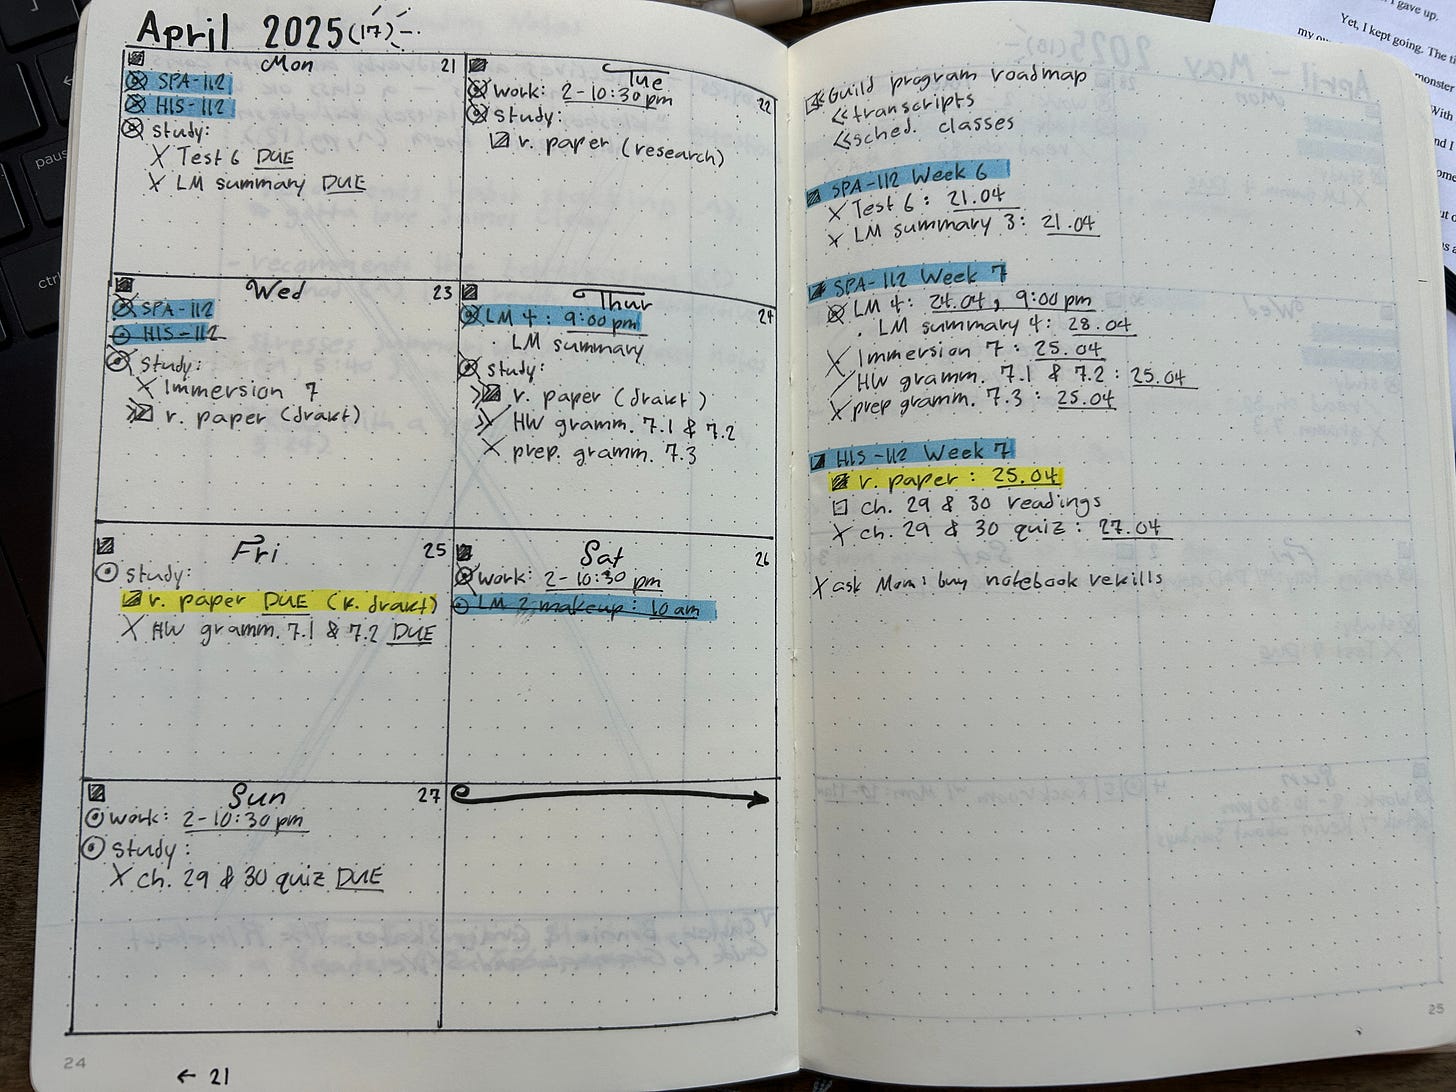 April 2025 (17)
Mon 21
SPA-112
HIS-112
study:
X Test 6 DUE
X LM summary DUE
Tue 22
work: 2-10:30pm
study:
r. paper (research)
Wed 23
SPA-112
HIS-112
study:
X Immersion 7
r. paper (draft)
Thur 24
LM 4: 9:00pm
. LM summary
study:
r. paper (draft)
HW gramm. 7.1 & 7.2
X prep. gramm. 7.3
Fri 25
study:
r. paper DUE (r. draft)
X HW gramm. 7.1 & 7.2 DUE
Sat 26
work: 2-10:30 pm
LM 2 makeup: 10 am
Sun 27
work: 2-10:30pm
study:
X ch. 29 & 30 quiz DUE
24
← 21
Guild program roadmap
<transcripts
<sched. classes
SPA-112 Week 6
X Test 6: 21.04
X LM summary 3: 21.04
SPA-112 Week 7
LM 4: 24.04, 9:00pm
. LM summary 4: 28.04
X Immersion 7: 25.04
HW gramm. 7.1 & 7.2: 25.04
X prep gramm. 7.3: 25.04
HIS-112 Week 7
r. paper: 25.04
ch. 29 & 30 readings
X ch. 29 & 30 quiz: 27.04
X ask Mom: buy notebook refills
25
I gave up.
Yet, I kept going. The
my
monster
With